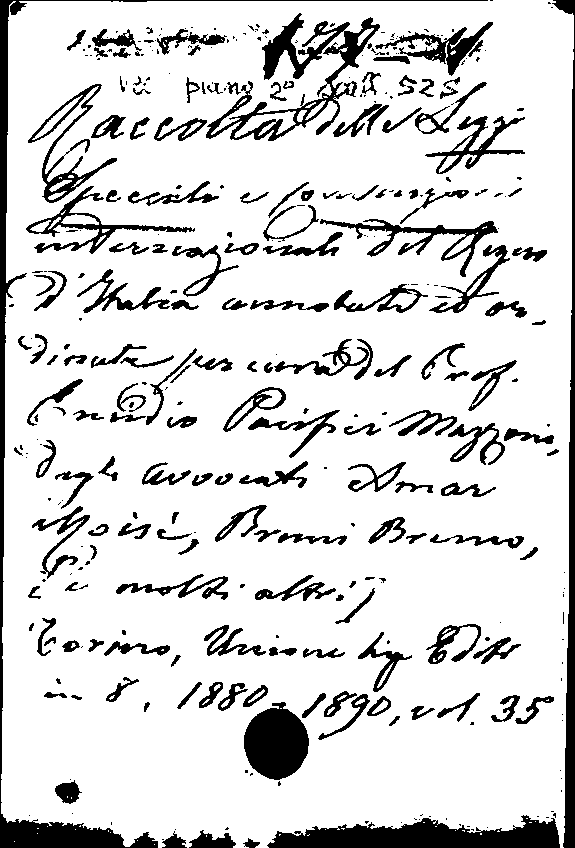 VII piano 2°, scaff. 525
Raccolta delle Leggi
Speciali e convenzioni
internazionali del Regno
d'Italia annotate ed or-
dinate per cura del Prof.
Emidio Pacifici Mazzoni,
degli Avvocati Amar
Moisè, Bruni Bruno,
[e molti altri]
Torino, Unione tip Editr
in 8, 1880-1890, vol. 35